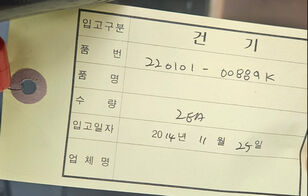 입고구분 건 기
품 번 220101 - 00889K
품 명
수 량 2EA
입고일자 2014년 11 월 25일
업 체 명